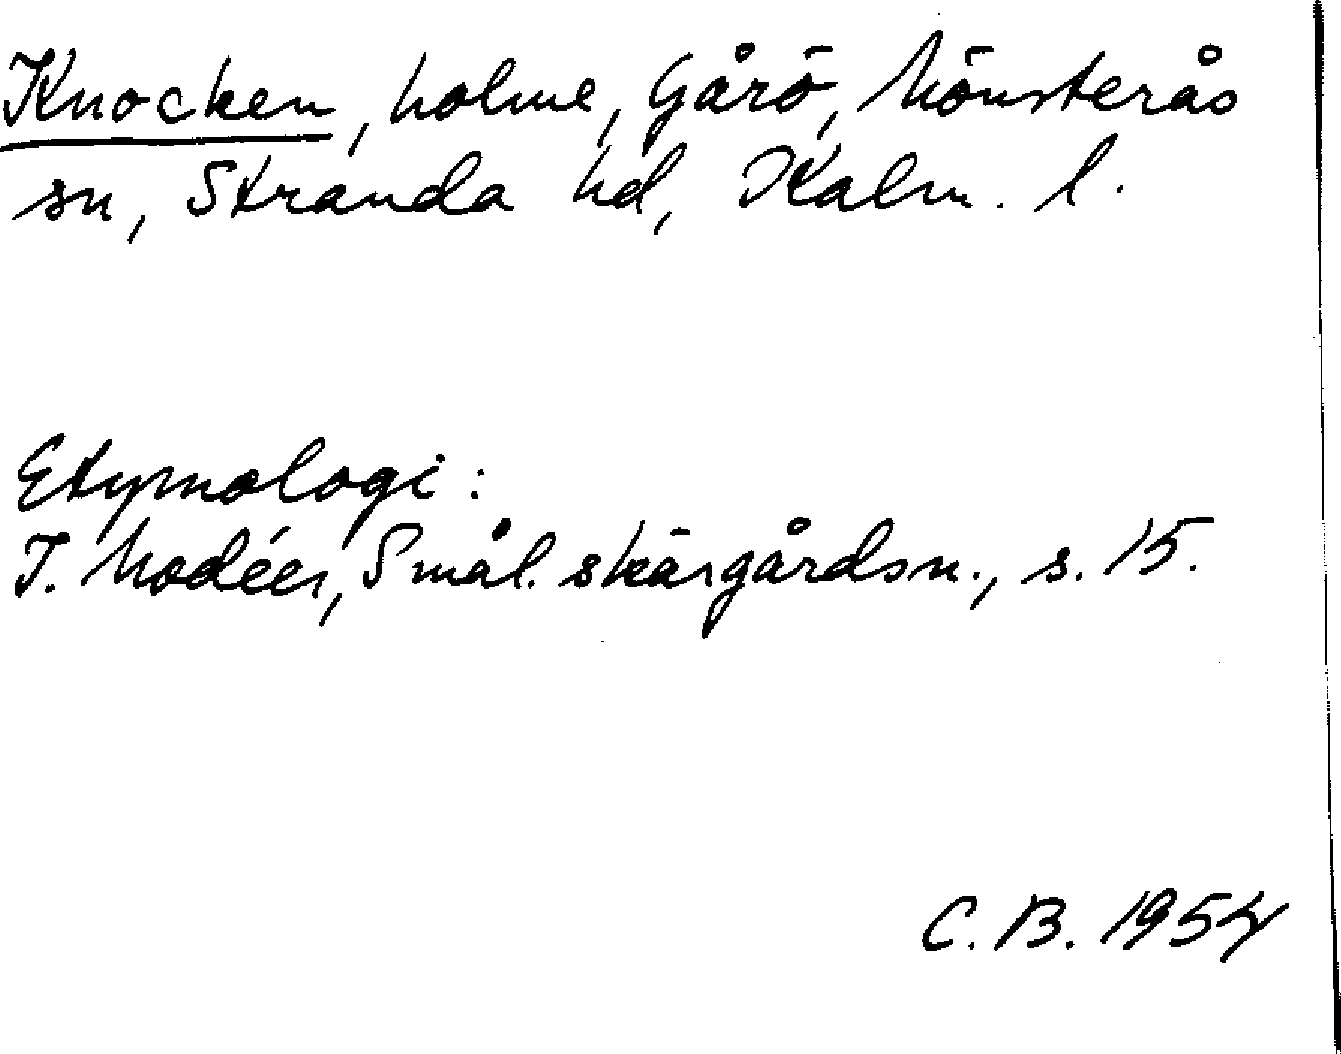 Knocken, holme, Gårö, Mönsterås
sn, Stranda hd, Kalm. l.
Etymologi:
I. Modéer, Smål. skärgårdsn., s. 15.
C. B. 1954